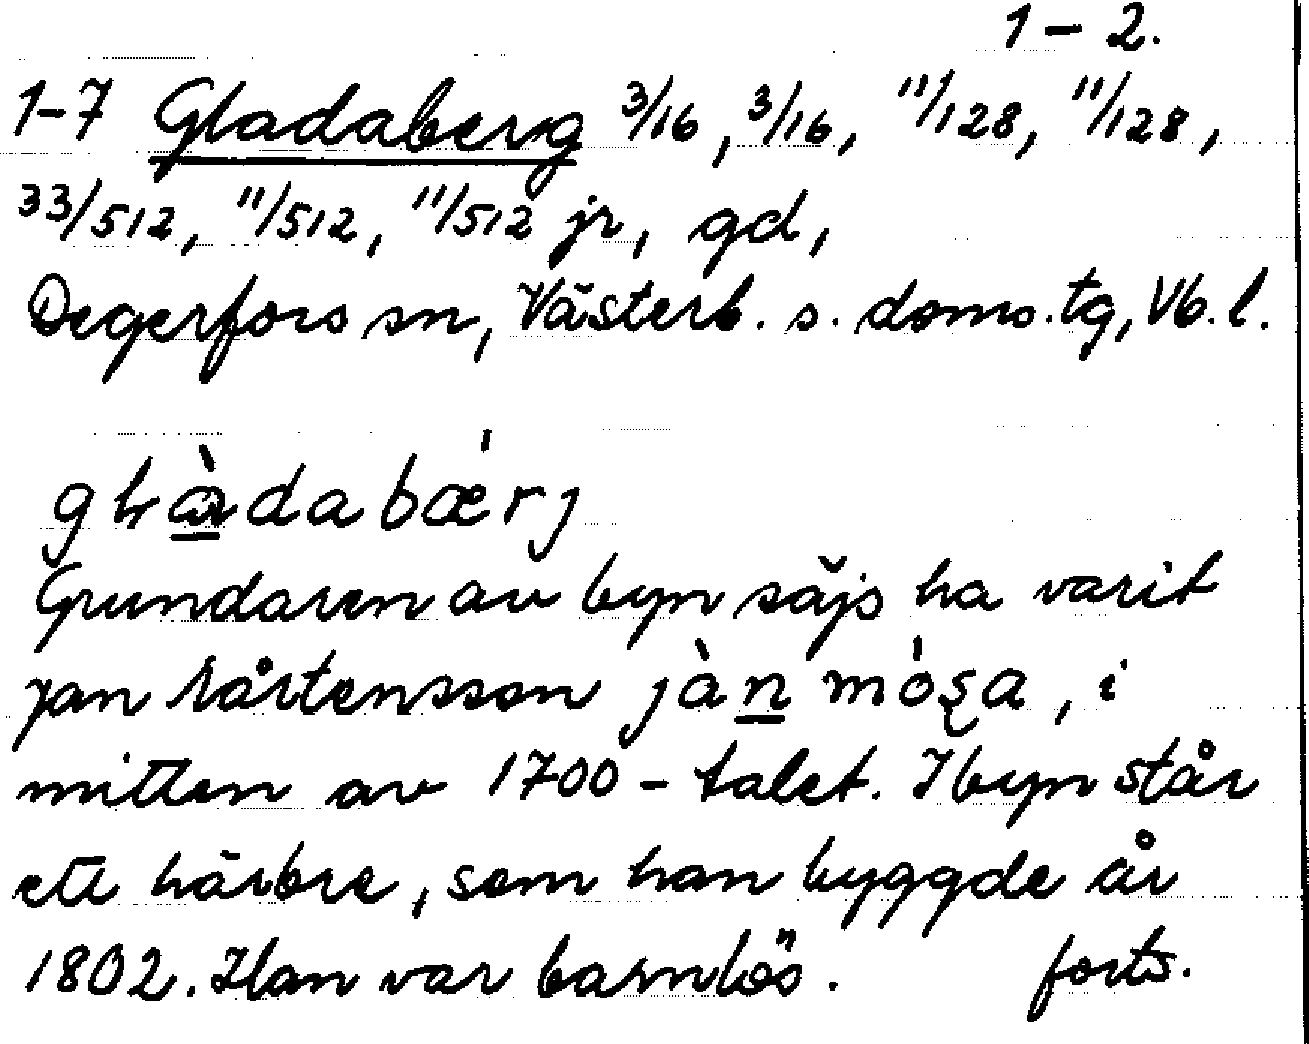 1-2.
1-7 Gladaberg 3/16, 3/16, 11/128, 11/128,
33/512, 11/512, 11/512 jr, gd,
Degerfors sn, Västerb. s. doms.tg, Vb. l.
Grundaren av byn säjs ha varit
Jan Mårtensson jàn mósa, i
mitten av 1700-talet. I byn står
ett härbre, som han byggde år
1802. Han var barnlös. forts.